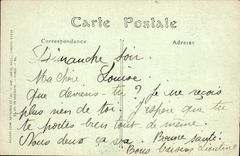 Carte Postale
Correspondance
Adresse
Dimanche soir.
Ma chère Louise
Que deviens-tu ? je ne reçois
plus rien de toi. J'espère que tu
te portes bien tout de même.
Nous deux ça va. Bonne santé.
Bons baisers